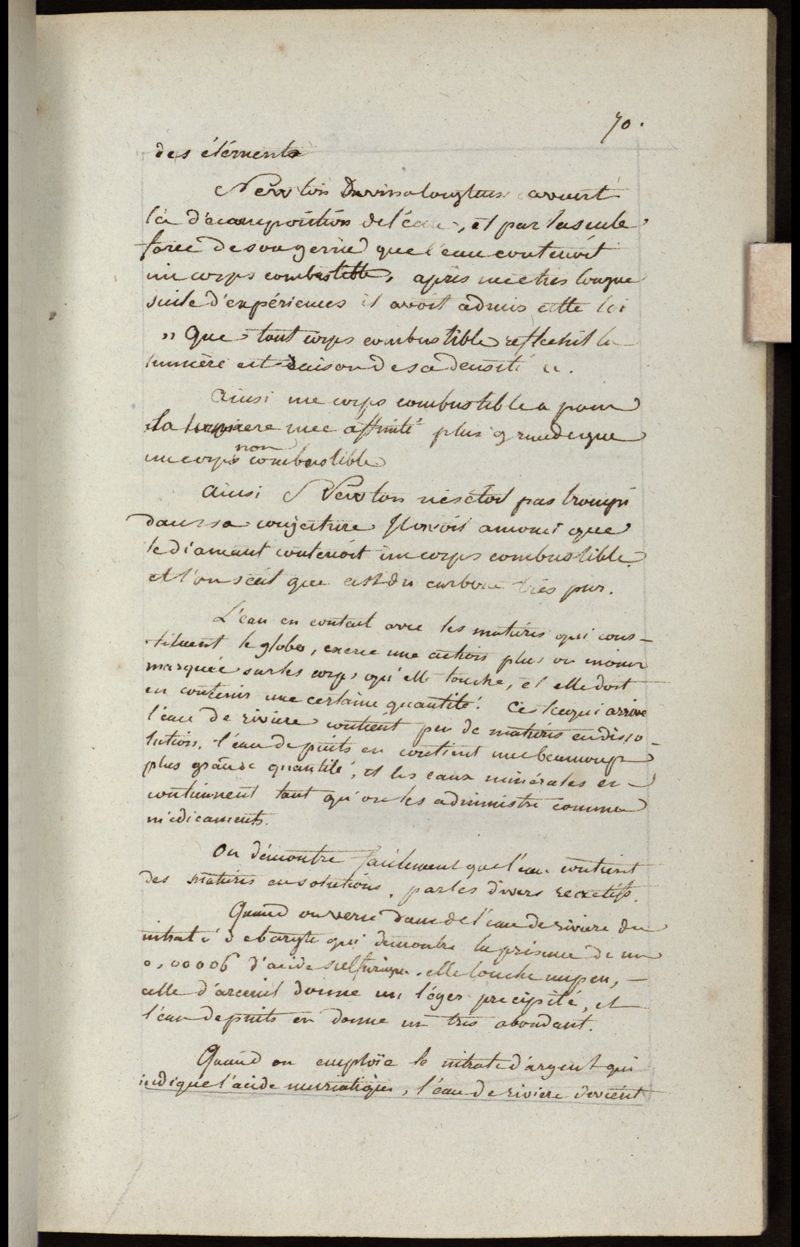 70.
des éléments
Newton Devina longtems avant
la décomposition de l'eau, et par la seule
force de son genie que l'eau contenoit
un corps combustible, après une tres longue
suite d'expériences il avoit admis cette loi
" Que tout corps combustible reflechit la
lumière en raison de sa densité ".
ainsi un corps combustible a pour
la lumiere une affinité plus grande que
un corps non combustible
ainsi Newton n'esctoit pas trompé
dans sa conjecture Il avoit annoncé que
le Diamant contenoit un corps combustible
et l'on scait que c'est du carbone très pur.
L'eau en contact avec les matieres qui cons-
-tituent le globe, exerce une action plus ou moins
marquée sur les corps qu'elle touche, et elle doit
en contenir une certaine quantité. Ce ce qui arrive
l'eau de riviere contient peu de matieres en disso-
lution, l'eau de puits en contient une beaucoup
plus grande quantité, et les eaux minérales en
contiennent tant qu'on les administre comme
médicaments.
On démontre facilement que l'eau contient
des matieres en solutions, par les divers reactifs.
Quand on verse dans de l'eau de riviere du
nitrate de baryte qui demontre la présence de un
0,00006 d'acide sulfurique, elle louche un peu, -
celle d'arceuil donne un léger precipité, et
l'eau de puits en donne un très abondant.
Quand on emploïe le nitrate d'argent qui
indique l'acide muriatique, l'eau de riviere devient